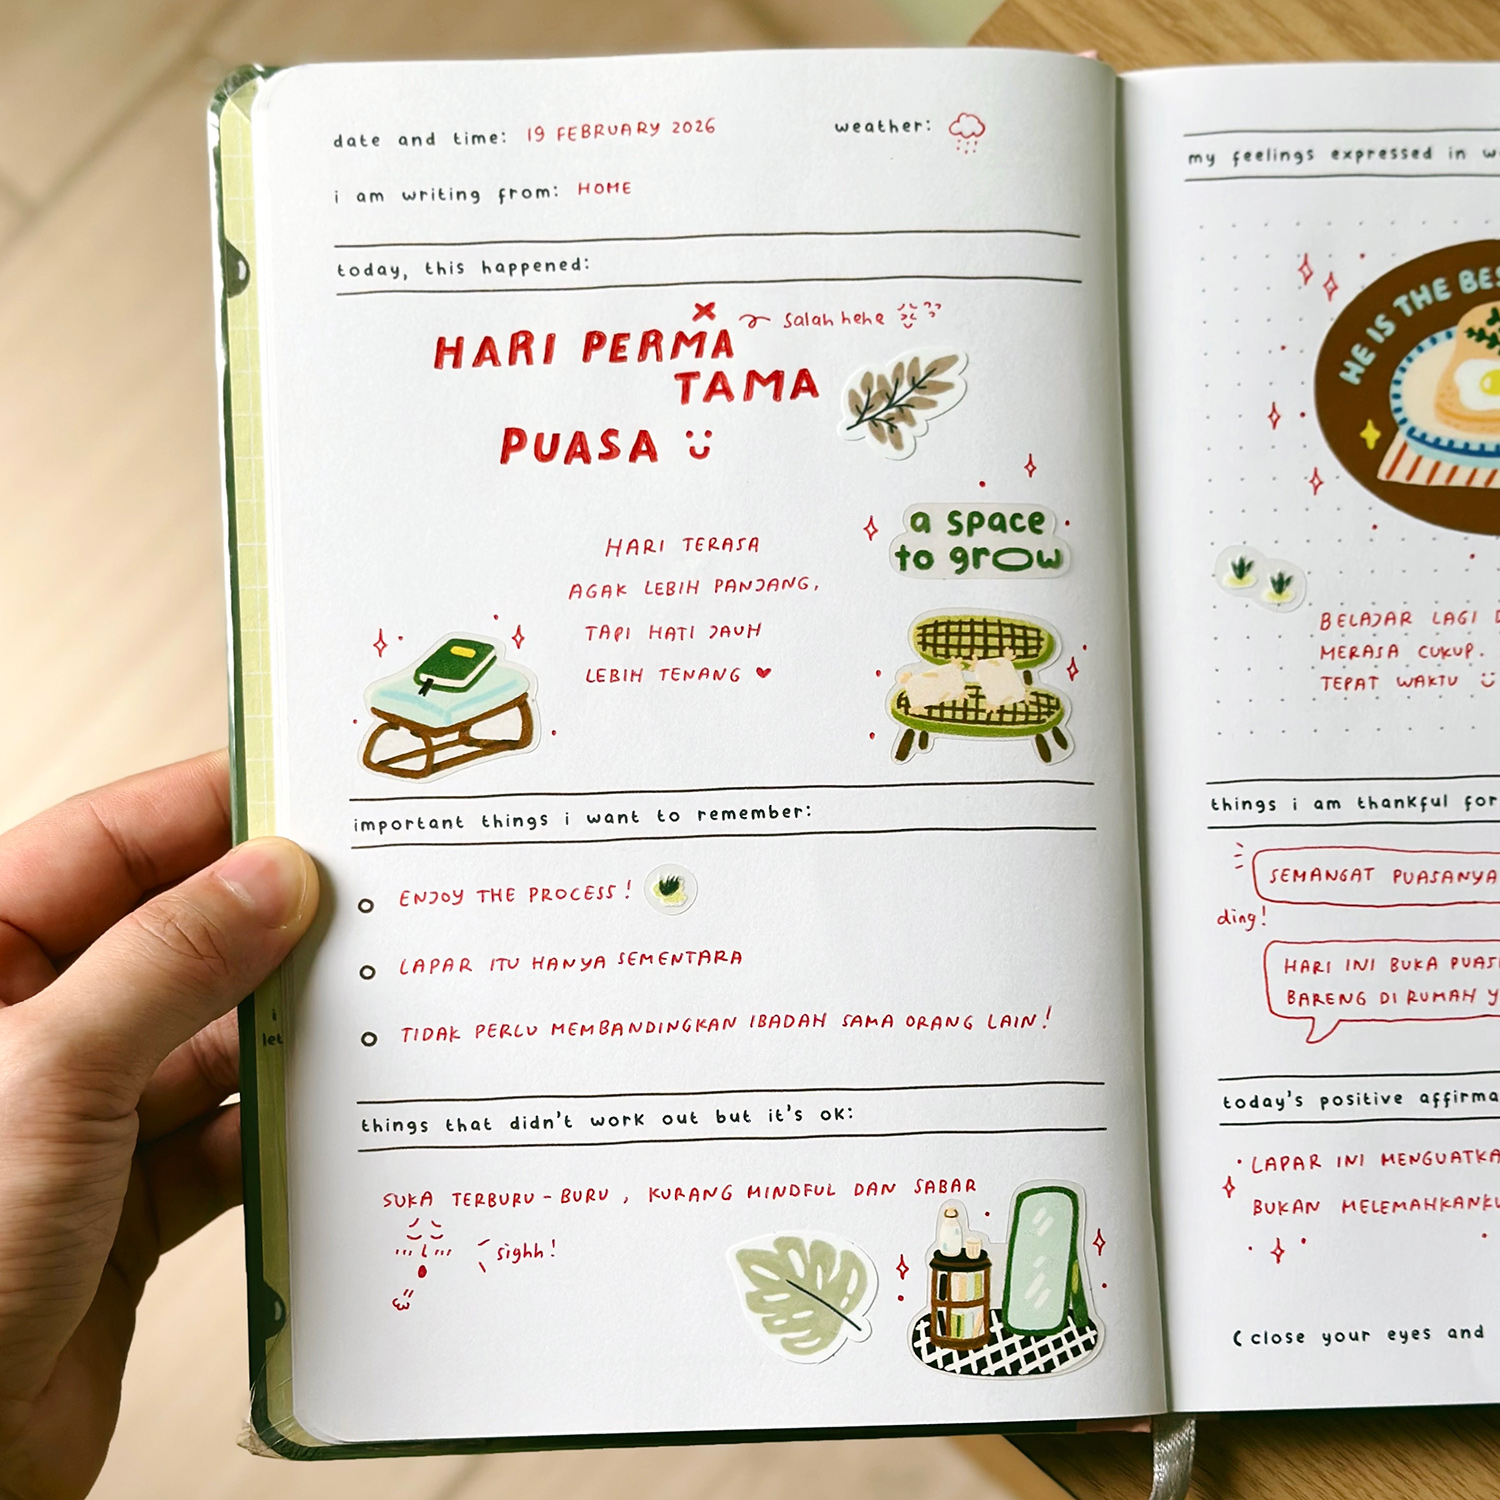 date and time: 19 FEBRUARY 2026
weather:
i am writing from: HOME
today, this happened:
HARI PERMA
salah hehe
TAMA
PUASA
a space
to grow
HARI TERASA
AGAK LEBIH PANJANG,
TAPI HATI JAUH
LEBIH TENANG
important things i want to remember:
ENJOY THE PROCESS!
LAPAR ITU HANYA SEMENTARA
TIDAK PERLU MEMBANDINGKAN IBADAH SAMA ORANG LAIN!
things that didn't work out but it's ok:
SUKA TERBURU-BURU, KURANG MINDFUL DAN SABAR
sighh!
i
let
my feelings expressed in
HE IS THE
BELAJAR LAGI
MERASA CUKUP.
TEPAT WAKTU
things i am thankful for
SEMANGAT PUASANYA
ding!
HARI INI BUKA
BARENG DI RUMAH
today's positive
LAPAR INI
BUKAN
(close your eyes and